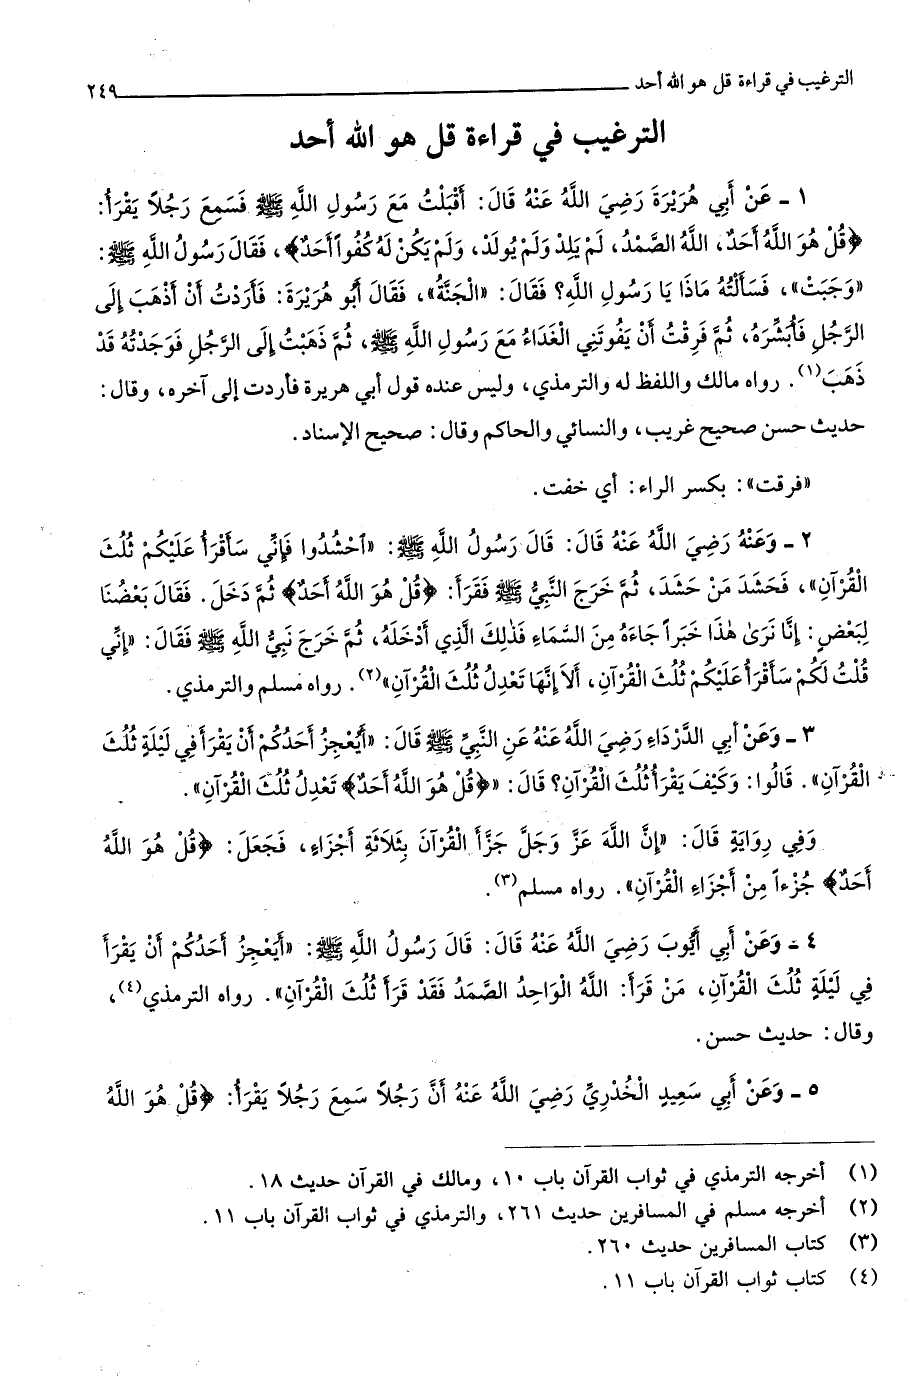 الترغيب في قراءة قل هو الله أحد ٢٤٩
الترغيب في قراءة قل هو الله أحد
١ ـ عَنْ أَبِي هُرَيْرَةَ رَضِيَ اللَّهُ عَنْهُ قَالَ: أَقْبَلْتُ مَعَ رَسُولِ اللَّهِ ﷺ فَسَمِعَ رَجُلاً يَقْرَأُ:
﴿قُلْ هُوَ اللَّهُ أَحَدٌ، اللَّهُ الصَّمْدُ، لَمْ يَلِدْ وَلَمْ يُولَدْ، وَلَمْ يَكُنْ لَهُ كُفُواً أَحَدٌ﴾، فَقَالَ رَسُولُ اللَّهِ ﷺ:
«وَجَبَتْ»، فَسَأَلْتُهُ مَاذَا يَا رَسُولَ اللَّهِ؟ فَقَالَ: «الْجَنَّةُ»، فَقَالَ أَبُو هُرَيْرَةَ: فَأَرَدْتُ أَنْ أَذْهَبَ إِلَى
الرَّجُلِ فَأُبَشِّرَهُ، ثُمَّ فَرِقْتُ أَنْ يَفُوتَنِي الْغَدَاءُ مَعَ رَسُولِ اللَّهِ ﷺ، ثُمَّ ذَهَبْتُ إِلَى الرَّجُلِ فَوَجَدْتُهُ قَدْ
ذَهَبَ(١). رواه مالك واللفظ له والترمذي، وليس عنده قول أبي هريرة فأردت إلى آخره، وقال:
حديث حسن صحيح غريب، والنسائي والحاكم وقال: صحيح الإسناد.
«فرقت»: بكسر الراء: أي خفت.
٢ ـ وَعَنْهُ رَضِيَ اللَّهُ عَنْهُ قَالَ: قَالَ رَسُولُ اللَّهِ ﷺ: «احْشُدُوا فَإِنِّي سَأَقْرَأُ عَلَيْكُمْ ثُلُثَ
الْقُرْآنِ»، فَحَشَدَ مَنْ حَشَدَ، ثُمَّ خَرَجَ النَّبِيُّ ﷺ فَقَرَأَ: ﴿قُلْ هُوَ اللَّهُ أَحَدٌ﴾ ثُمَّ دَخَلَ. فَقَالَ بَعْضُنَا
لِبَعْضٍ: إِنَّا نَرَىٰ هٰذَا خَبَراً جَاءَهُ مِنَ السَّمَاءِ فَذٰلِكَ الَّذِي أَدْخَلَهُ، ثُمَّ خَرَجَ نَبِيُّ اللَّهِ ﷺ فَقَالَ: «إِنِّي
قُلْتُ لَكُمْ سَأَقْرَأُ عَلَيْكُمْ ثُلُثَ الْقُرْآنِ، أَلاَ إِنَّهَا تَعْدِلُ ثُلُثَ الْقُرْآنِ»(٢). رواه مسلم والترمذي.
٣ ـ وَعَنْ أَبِي الدَّرْدَاءِ رَضِيَ اللَّهُ عَنْهُ عَنِ النَّبِيِّ ﷺ قَالَ: «أَيَعْجِزُ أَحَدُكُمْ أَنْ يَقْرَأَ فِي لَيْلَةٍ ثُلُثَ
الْقُرْآنِ». قَالُوا: وَكَيْفَ يَقْرَأُ ثُلُثَ الْقُرْآنِ؟ قَالَ: «﴿قُلْ هُوَ اللَّهُ أَحَدٌ﴾ تَعْدِلُ ثُلُثَ الْقُرْآنِ».
وَفِي رِوَايَةٍ قَالَ: «إِنَّ اللَّهَ عَزَّ وَجَلَّ جَزَّأَ الْقُرْآنَ بِثَلاَثَةِ أَجْزَاءٍ، فَجَعَلَ: ﴿قُلْ هُوَ اللَّهُ
أَحَدٌ﴾ جُزْءاً مِنْ أَجْزَاءِ الْقُرْآنِ». رواه مسلم(٣).
٤ ـ وَعَنْ أَبِي أَيُّوبَ رَضِيَ اللَّهُ عَنْهُ قَالَ: قَالَ رَسُولُ اللَّهِ ﷺ: «أَيَعْجِزُ أَحَدُكُمْ أَنْ يَقْرَأَ
فِي لَيْلَةٍ ثُلُثَ الْقُرْآنِ، مَنْ قَرَأَ: اللَّهُ الْوَاحِدُ الصَّمَدُ فَقَدْ قَرَأَ ثُلُثَ الْقُرْآنِ». رواه الترمذي(٤)،
وقال: حديث حسن.
٥ ـ وَعَنْ أَبِي سَعِيدٍ الْخُدْرِيِّ رَضِيَ اللَّهُ عَنْهُ أَنَّ رَجُلاً سَمِعَ رَجُلاً يَقْرَأُ: ﴿قُلْ هُوَ اللَّهُ
(١) أخرجه الترمذي في ثواب القرآن باب ١٠، ومالك في القرآن حديث ١٨.
(٢) أخرجه مسلم في المسافرين حديث ٢٦١، والترمذي في ثواب القرآن باب ١١.
(٣) كتاب المسافرين حديث ٢٦٠.
(٤) كتاب ثواب القرآن باب ١١.